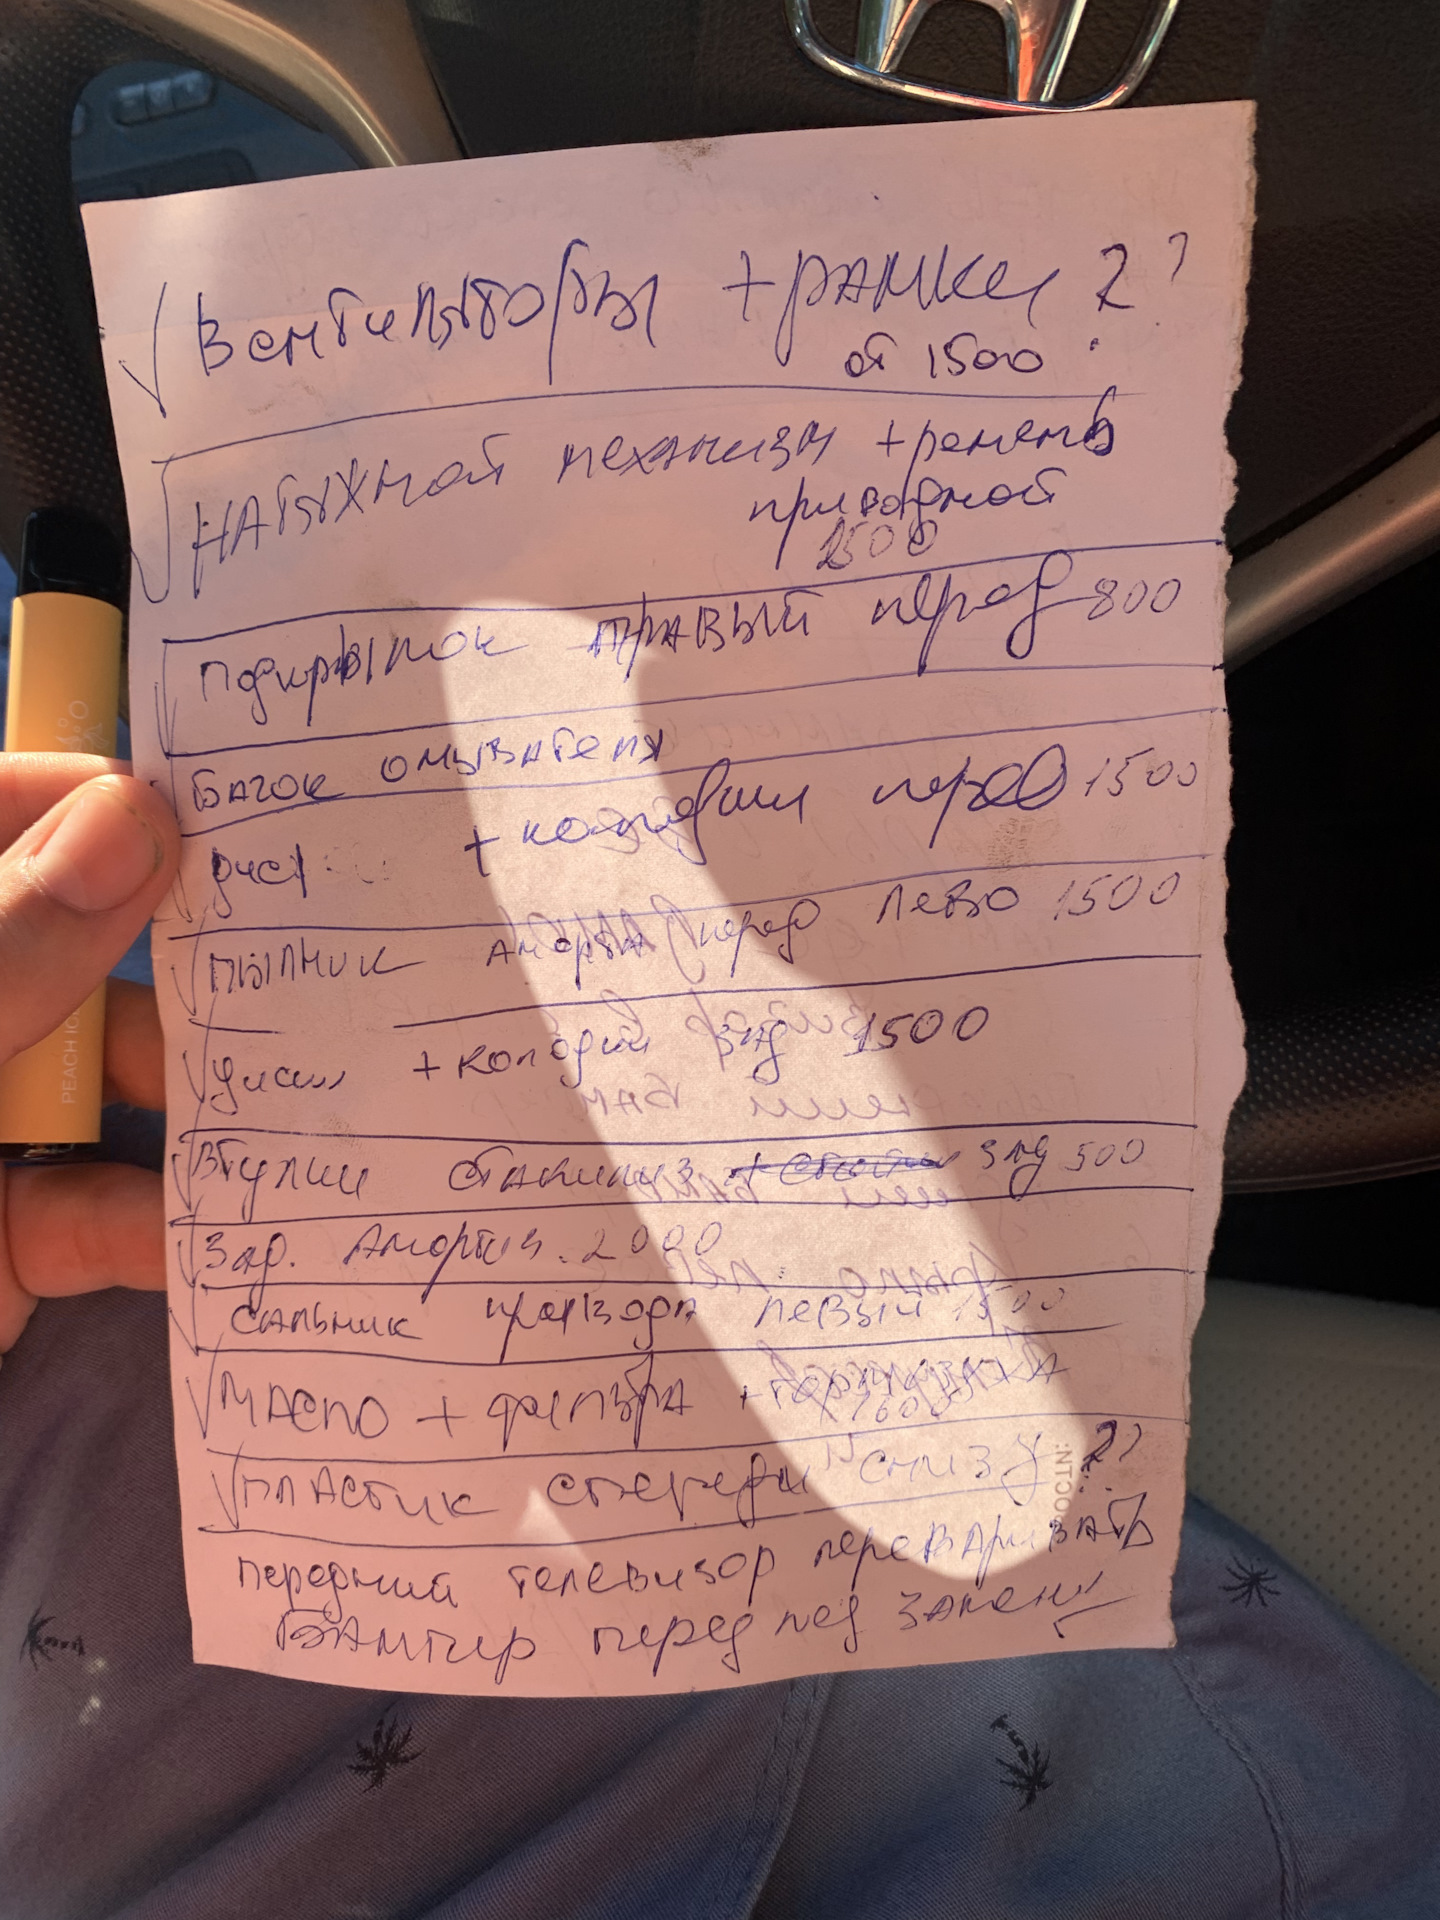 Вентиляторы + рамки 2 ?
от 1500
Натяжной механизм + ремень
приводной
1500
Подкрылок правый перед 800
Бачок омывателя
диск + колодки перед 1500
пыльник аморта перед лево 1500
диски + колодки зад 1500
Втулки стабилиз зад 500
Зад. Амортиз. 2000
сальник привода левый 1500
масло + фильтра + тормозуха
1600
пластик спереди снизу ??
передний телевизор переваривать
Бампер перед под замену
PEACH IC